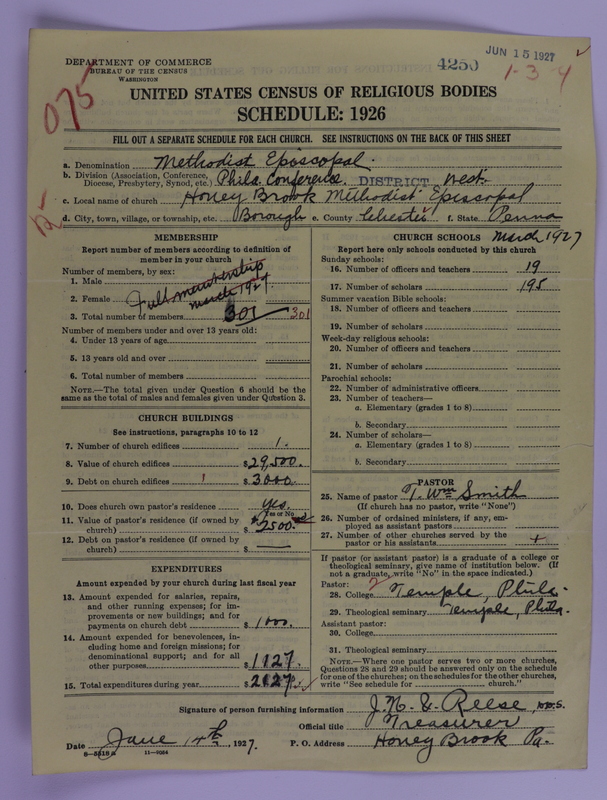 DEPARTMENT OF COMMERCE
BUREAU OF THE CENSUS
WASHINGTON
4250
JUN 15 1927
1-3-4
075
UNITED STATES CENSUS OF RELIGIOUS BODIES
SCHEDULE: 1926
FILL OUT A SEPARATE SCHEDULE FOR EACH CHURCH. SEE INSTRUCTIONS ON THE BACK OF THIS SHEET
a. Denomination Methodist Episcopal.
b. Division (Association, Conference, Diocese, Presbytery, Synod, etc.) Phila. Conference. DISTRICT West.
c. Local name of church Honey Brook Methodist Episcopal
d. City, town, village, or township, etc. Borough e. County Chester f. State Penna
MEMBERSHIP
Report number of members according to definition of
member in your church
Number of members, by sex:
1. Male
2. Female
Full membership
March 1927.
3. Total number of members 301 301
Number of members under and over 13 years old:
4. Under 13 years of age
5. 13 years old and over
6. Total number of members
NOTE.—The total given under Question 6 should be the
same as the total of males and females given under Question 3.
CHURCH BUILDINGS
See instructions, paragraphs 10 to 12
7. Number of church edifices 1.
8. Value of church edifices $29,500.
9. Debt on church edifices $3,000.
10. Does church own pastor's residence yes.
Yes or No
11. Value of pastor's residence (if owned by
church) $2500
12. Debt on pastor's residence (if owned by
church) $ —
EXPENDITURES
Amount expended by your church during last fiscal year
13. Amount expended for salaries, repairs,
and other running expenses; for im-
provements or new buildings; and for
payments on church debt $1000.
14. Amount expended for benevolences, in-
cluding home and foreign missions; for
denominational support; and for all
other purposes $1127.
15. Total expenditures during year $2127.
CHURCH SCHOOLS March 1927
Report here only schools conducted by this church
Sunday schools:
16. Number of officers and teachers 19
17. Number of scholars 195
Summer vacation Bible schools:
18. Number of officers and teachers
19. Number of scholars
Week-day religious schools:
20. Number of officers and teachers
21. Number of scholars
Parochial schools:
22. Number of administrative officers
23. Number of teachers—
a. Elementary (grades 1 to 8)
b. Secondary
24. Number of scholars—
a. Elementary (grades 1 to 8)
b. Secondary
PASTOR
25. Name of pastor T. Wm Smith
(If church has no pastor, write "None")
26. Number of ordained ministers, if any, em-
ployed as assistant pastors
27. Number of other churches served by the
pastor or his assistants
If pastor (or assistant pastor) is a graduate of a college or
theological seminary, give name of institution below. (If
not a graduate, write "No" in the space indicated.)
Pastor:
28. College Temple, Phila.
29. Theological seminary Temple, Phila.
Assistant pastor:
30. College
31. Theological seminary
NOTE.—Where one pastor serves two or more churches,
Questions 28 and 29 should be answered only on the schedule
for one of the churches; on the schedules for the other churches,
write "See schedule for church."
Signature of person furnishing information J. N. E. Reese D.D.S.
Official title Treasurer
Date June 14th, 1927. P. O. Address Honey Brook Pa.
8-5518 a 11-9034